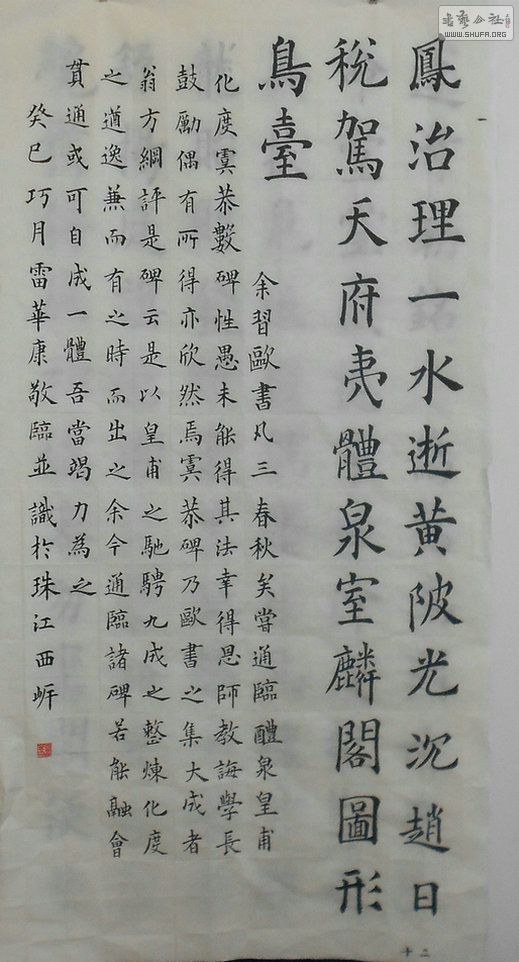 鳳治理一水逝黄陂光沉趙日
稅駕天府夷體泉室麟閣圖形
鳥臺
余習歐書凡三春秋矣嘗通臨醴泉皇甫
化度虞恭數碑性愚未能得其法幸得恩師教誨學長
鼓勵偶有所得亦欣然焉虞恭碑乃歐書之集大成者
翁方綱評是碑云是以皇甫之馳騁九成之整煉化度
之遒逸兼而有之時而出之余今通臨諸碑若能融會
貫通或可自成一體吾當竭力為之
癸巳巧月雷華康敬臨並識於珠江西岸
十二
書藝公社
WWW.SHUFA.ORG